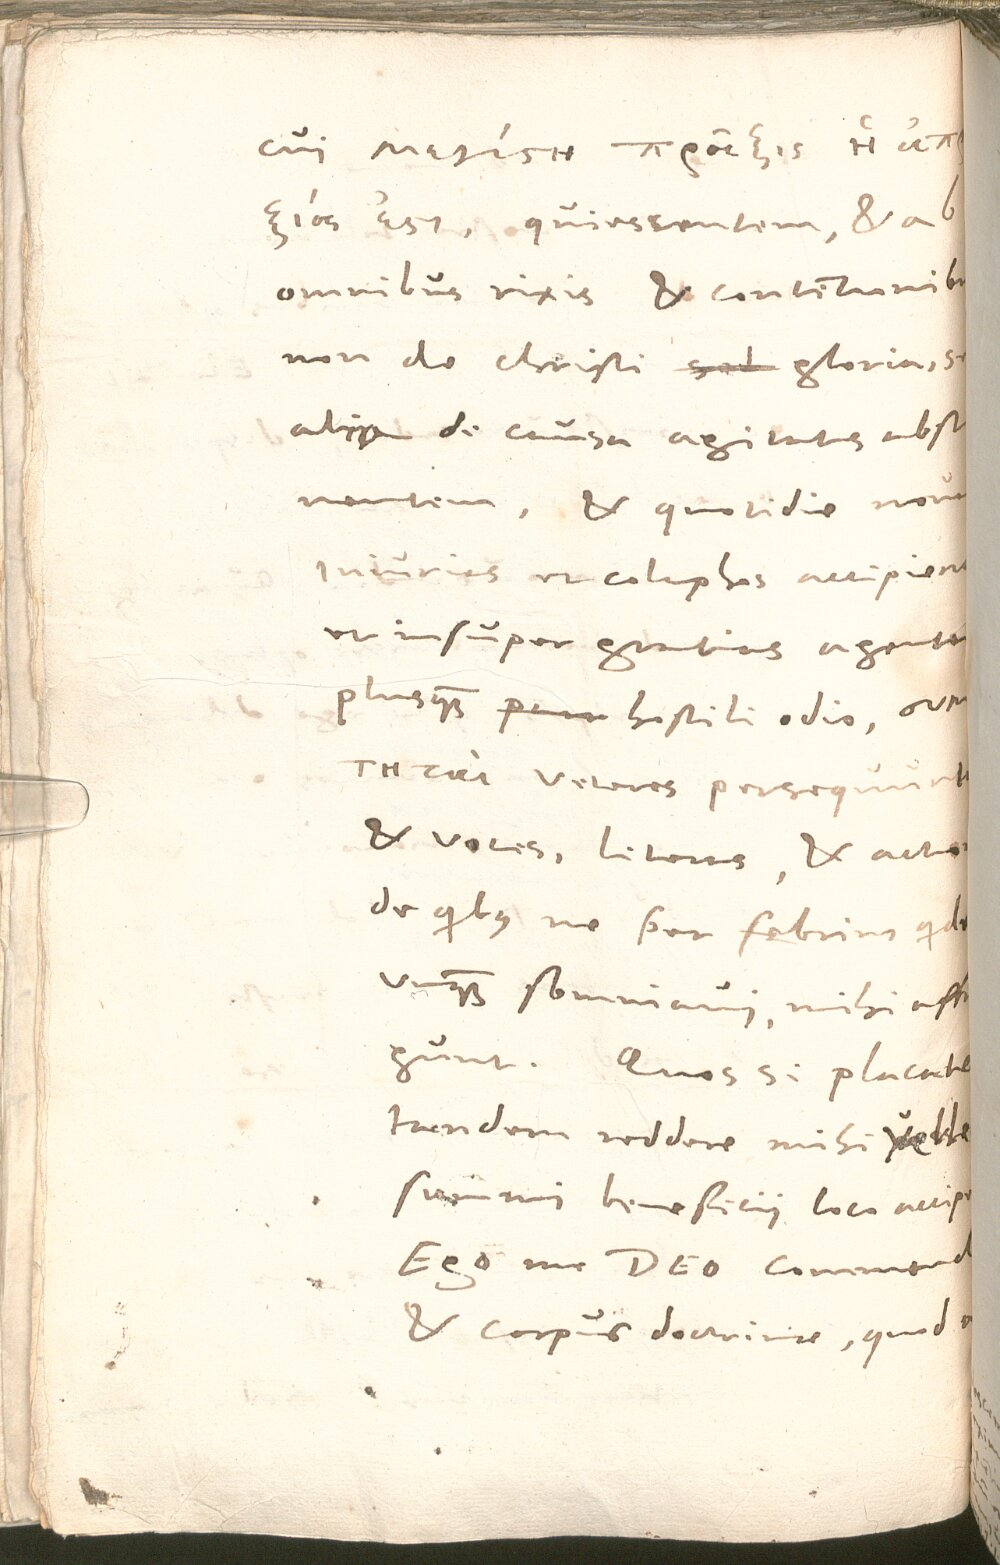 cui μεγίςη πρᾶξις ἡ ἀπρ
ξίας ἐςι, quiescentem, & ab
omnibus rixis & contētionibu
non de christi sed gloria, s
alijqa de causa agitatis absti
nentem, & quotidie nova
iniurias et colaphos accipient
et insuper gratias agente
plusq̃ hostili odio, συμ
τηταὶ veteres persequunt
& voces, literas, & action
de qibꝰ ne per febrim qide
vnq̃ somniavi, mihi affi
gunt. Quos si placate
tandem reddere mihi velle
summi beneficij loco accipe
Ego me DEO commend
& corpus doctrinæ, quod